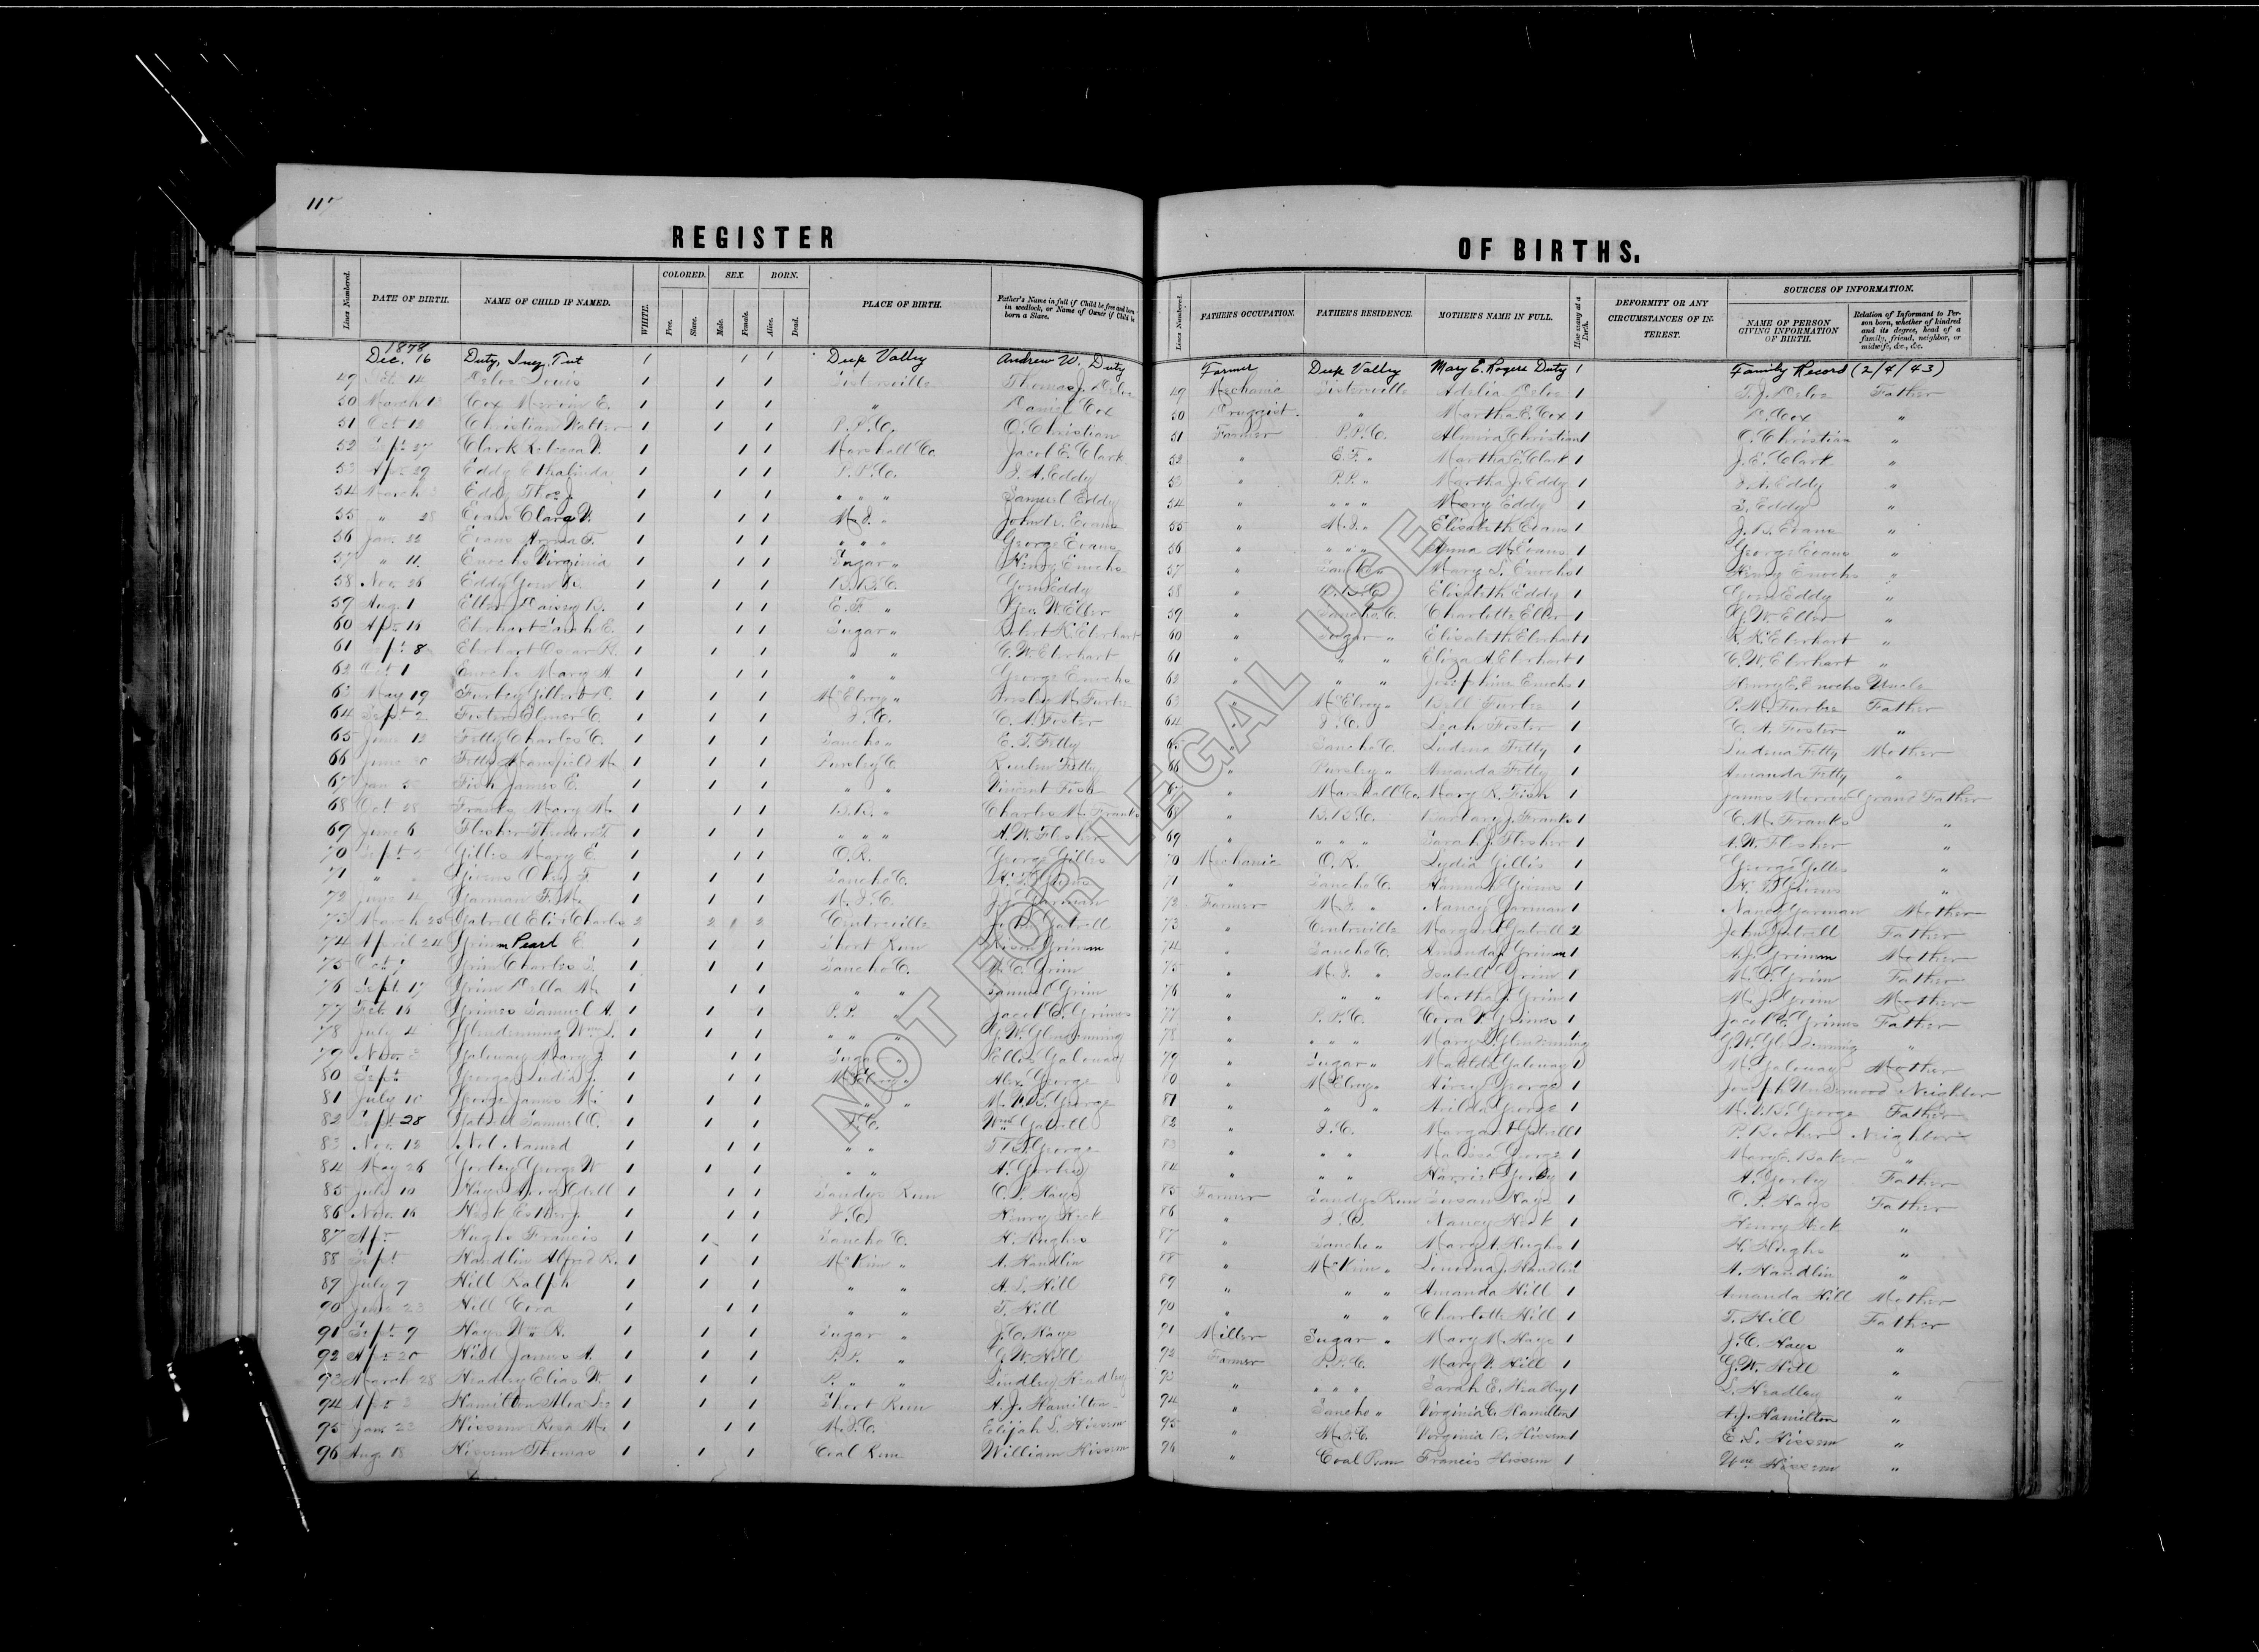 117
REGISTER OF BIRTHS.
Lines Numbered. DATE OF BIRTH. NAME OF CHILD IF NAMED. WHITE. COLORED. Free. Slave. SEX. Male. Female. BORN. Alive. Dead. PLACE OF BIRTH. Father's Name in full if Child be free and born in wedlock, or Name of Owner if Child be born a Slave.
Lines Numbered. FATHER'S OCCUPATION. FATHER'S RESIDENCE. MOTHER'S NAME IN FULL. How many at a Birth. DEFORMITY OR ANY CIRCUMSTANCES OF INTEREST. SOURCES OF INFORMATION. NAME OF PERSON GIVING INFORMATION OF BIRTH. Relation of Informant to Person born, whether of kindred and its degree, head of a family, friend, neighbor, or midwife, &c., &c.
1878
Dec. 16 Duty, 1 1 1 Deep Valley Andrew W. Duty Farmer Deep Valley Mary E. Rogers Duty 1 Family Record (2/4/43)
49 14 Louis 1 1 1 Sistersville Thomas J. 49 Mechanic Sistersville Adelia 1 T. J. Father
50 March 13 Cox E. 1 1 1 " Daniel Cox 50 Druggist " Martha E. Cox 1 D. Cox "
51 Oct 12 Christian Walter 1 1 1 P.P.C. O. Christian 51 Farmer P.P.C. Almira Christian 1 O. Christian "
52 Sept 27 Clark Rebecca V. 1 1 1 Marshall Co. Jacob E. Clark 52 " E. F. " Martha Clark 1 J. E. Clark "
53 Apr 29 Eddy 1 1 1 P.P.C. Eddy 53 " P.P. " Martha J. Eddy 1 Eddy "
54 March Eddy Thos J. 1 1 1 " " " Samuel Eddy 54 " " " " Mary Eddy 1 S. Eddy "
55 " 28 Evans Clara V. 1 1 1 M. I. " Evans 55 " M. I. " Elisabeth Evans 1 Evans "
56 Jan. 22 Evans F. 1 1 1 " " " George Evans 56 " " " " Anna M. Evans 1 George Evans "
57 " 11 Enochs Virginia 1 1 1 Sugar " Henry Enochs 57 " Mary S. Enochs 1 Henry Enochs "
58 Nov. 26 Eddy 1 1 1 B.B.C. Eddy 58 " B.B.C. Elisabeth Eddy 1 Eddy "
59 Aug. 1 Eller Daisey B. 1 1 1 E. F. " Geo. W. Eller 59 " Sancho C. Charlotte Eller 1 G. W. Eller "
60 Apr. 16 Eberhart Sarah E. 1 1 1 Sugar " Robert K. Eberhart 60 " Sugar " Elisabeth Eberhart 1 R. K. Eberhart "
61 Sept 8 Eberhart Oscar R. 1 1 1 " " C. W. Eberhart 61 " " " Eliza A. Eberhart 1 C. W. Eberhart "
62 Oct 1 Enochs Mary A. 1 1 1 " " George Enochs 62 " " " Josephine Enochs 1 Henry E. Enochs Uncle
63 May 19 Furbey Gilbert 1 1 1 McElroy " M. Furbee 63 " McElroy " Bell Furbee 1 P. M. Furbee Father
64 Sept 2 Foster Elmer C. 1 1 1 I. C. C. A. Foster 64 " I. C. Leah Foster 1 C. A. Foster "
65 June 12 Fetty Charles C. 1 1 1 Sancho " E. T. Fetty 65 " Sancho C. Ludema Fetty 1 Ludema Fetty Mother
66 June 30 Fetty Mansfield M. 1 1 1 Pursley C. Reuben Fetty 66 " Pursley " Amanda Fetty 1 Amanda Fetty "
67 Jan Fish James E. 1 1 1 " " Vincent Fish " Marshall Co. Mary R. Fish 1 James Grand Father
68 Oct 28 Franks Mary M. 1 1 1 B.B. " Charles M. Franks 68 " B.B.C. Barbary J. Franks 1 C. M. Franks "
69 June 6 Flesher Theodore F. 1 1 1 " " " A. W. Flesher 69 " " " " Sarah J. Flesher 1 A. W. Flesher "
70 Sept Gillis Mary E. 1 1 1 O. R. George Gillis 70 Mechanic O. R. Lydia Gillis 1 George Gillis "
71 " " F. 1 1 1 Sancho C. 71 " Sancho C. Hannah 1 "
72 June 4 Garman F. M. 1 1 1 M. I. C. Garman 72 Farmer M. I. " Nancy Garman 1 Nancy Garman Mother
73 March 25 Gatrell Eli & Charles 2 2 2 Centreville John Gatrell 73 " Centreville Margaret Gatrell 2 John Gatrell Father
74 April 24 Grimm Pearl E 1 1 1 Short Run Grimm 74 " Sancho C. Amanda Grimm 1 A. J. Grimm Mother
75 Oct 7 Grim Charles S. 1 1 1 Sancho C. M. C. Grim 75 " M. I. " Isabell Grim 1 M. C. Grim Father
76 Sept 17 Grim Della M. 1 1 1 " " Samuel Grim 76 " " " Martha J. Grim 1 M. J. Grim Mother
77 Feb. 16 Grimes Samuel A. 1 1 1 P.P. " Jacob C. Grimes 77 " P.P.C. Cora V. Grimes 1 Jacob C. Grimes Father
78 July 4 Glendenning Wm S. 1 1 1 " " " G. W. Glendenning 78 " " " " Mary Glendenning 1 G. W. Glendenning "
79 Nov. Galoway Mary J. 1 1 1 Sugar " Ellis Galoway 79 " Sugar " Matilda Galoway 1 M. Galoway Mother
80 Sept George J. 1 1 1 McElroy " Alex. George 80 " McElroy " George 1 Joseph Underwood Neighbor
81 July 10 George James M. 1 1 1 " " M. V. B. George 81 " " " Arilda George 1 M. V. B. George Father
82 Sept. 28 Gatrell Samuel O. 1 1 1 I. C. Wm Gatrell 82 " I. C. Margaret Gatrell 1 P. Neighbor
83 Nov. 12 Not Named 1 1 1 " " George 83 " " " Malissa George 1 Mary E. Baker "
84 May 26 Gorby George W 1 1 1 " " A. Gorby 84 " " " Harriet Gorby 1 A. Gorby Father
85 July 10 Hays 1 1 1 Sandys Run O. P. Hays 85 Farmer Sandys Run Susan Hays 1 O. P. Hays Father
86 Nov. 16 Heck Esther J. 1 1 1 I. C. Henry Heck 86 " I. C. Nancy Heck 1 Henry Heck "
87 Apr Hughs Francis 1 1 1 Sancho C. H. Hughs 87 " Sancho " Mary A. Hughs 1 H. Hughs "
88 Sept Handlin Alfred R. 1 1 1 McKim " A. Handlin 88 " McKim " J. Handlin 1 A. Handlin "
89 July 9 Hill Ralph 1 1 1 " " A. S. Hill 89 " " " Amanda Hill 1 Amanda Hill Mother
90 June 23 Hill Cora 1 1 1 " " T. Hill 90 " " " Charlotte Hill 1 T. Hill Father
91 Sept 9 Hays Wm R. 1 1 1 Sugar " J. C. Hays 91 Miller Sugar " Mary M. Hays 1 J. C. Hays "
92 Apr 20 Hill James A. 1 1 1 P.P. " G. W. Hill 92 Farmer P.P.C. Mary V. Hill 1 G. W. Hill "
93 March 28 Headley Elias W. 1 1 1 P. " " Lindley Headley 93 " " " " Sarah E. Headley 1 L. Headley "
94 Apr 3 Hamilton Alva Lee 1 1 1 Short Run A. J. Hamilton 94 " Sancho " Virginia C. Hamilton 1 A. J. Hamilton "
95 Jan. 23 Hissem Rosa M. 1 1 1 M. I. C. Elijah S. Hissem 95 " M. I. C. Virginia B. Hissem 1 E. S. Hissem "
96 Aug. 18 Hissem Thomas 1 1 1 Coal Run William Hissem 96 " Coal Run Francis Hissem 1 Wm Hissem "
NOT FOR LEGAL USE